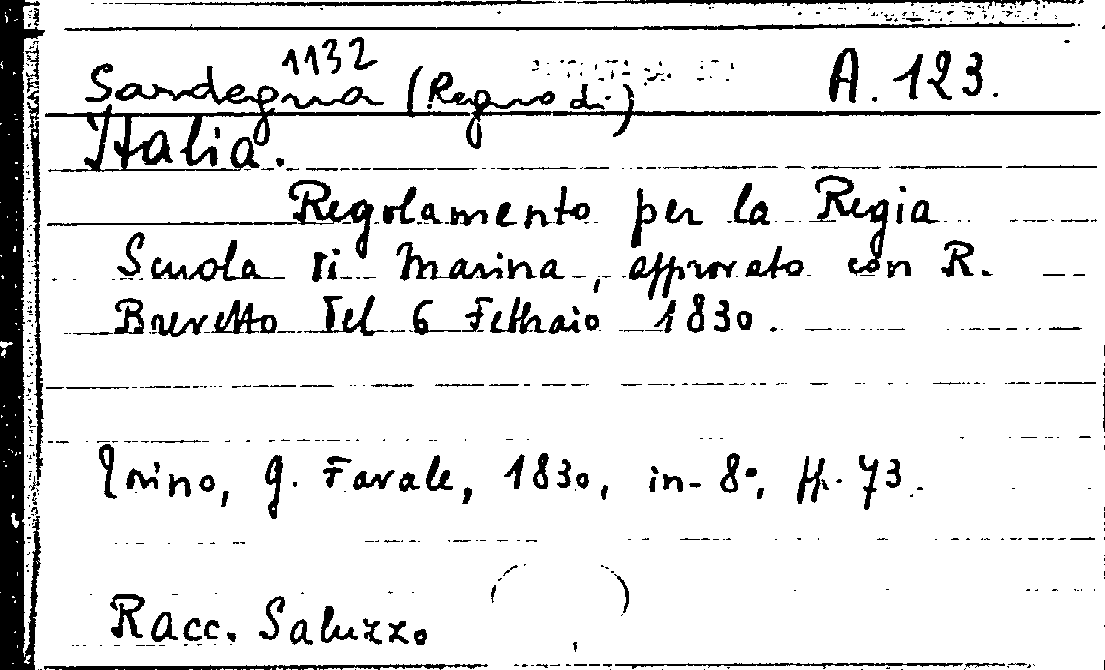 1132
Sardegna (Regno di) A. 123.
Italia.
Regolamento per la Regia
Scuola di Marina, approvato con R.
Brevetto del 6 Febbraio 1830.
Torino, G. Favale, 1830, in-8°, pp. 73.
Racc. Saluzzo